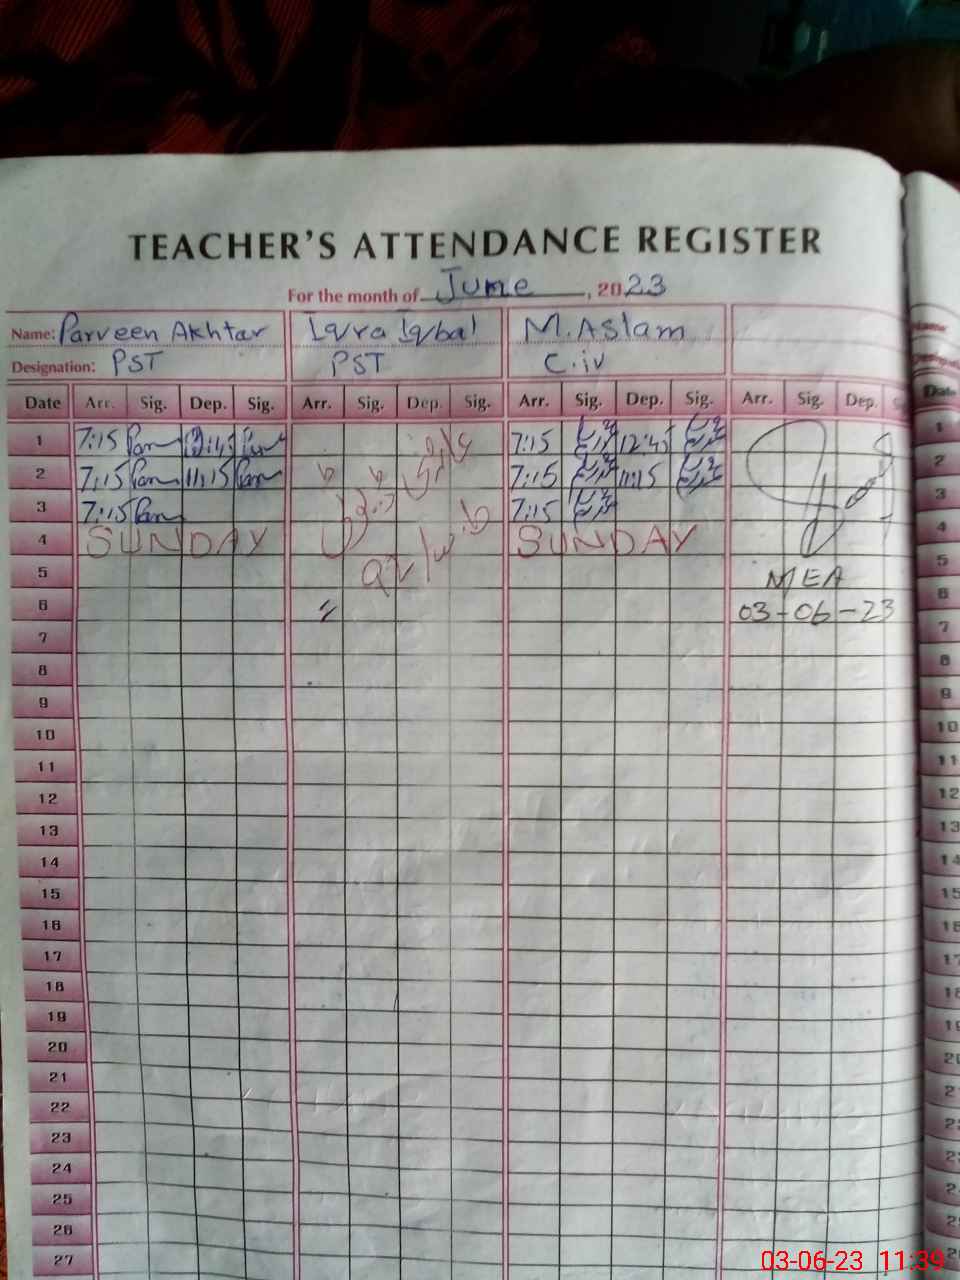 TEACHER'S ATTENDANCE REGISTER
For the month of June, 2023
Name: Parveen Akhtar Iqra Iqbal M.Aslam
Designation: PST PST C.iv
Date Arr. Sig. Dep. Sig. Arr. Sig. Dep. Sig. Arr. Sig. Dep. Sig. Arr. Sig. Dep.
1 7:15 12:45 7:15 12:45
2 7:15 11:15 7:15 11:15
3 7:15 7:15
4 SUNDAY SUNDAY
5 MEA
6 03-06-23
7
8
9
10
11
12
13
14
15
16
17
18
19
20
21
22
23
24
25
26
27
Name:
Date
1
2
3
4
5
6
7
8
9
10
11
12
13
14
15
16
17
18
19
03-06-23 11:39